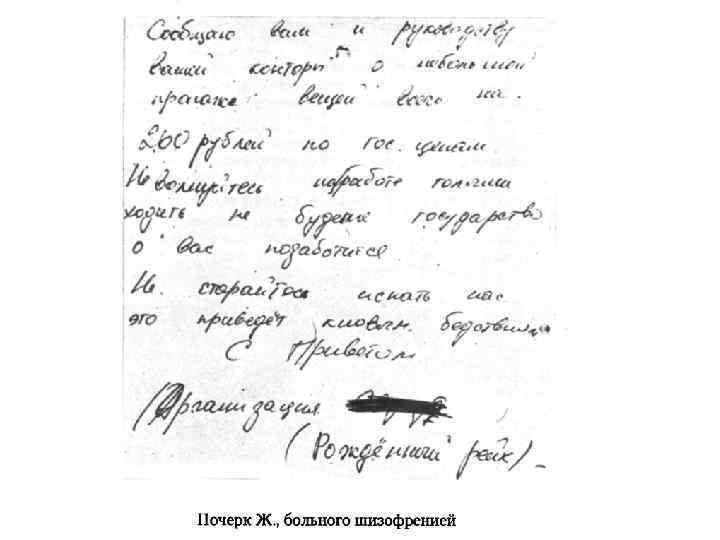 Сообщаю вам и руководству
вашей конторы о небольшой
пропаже вещей всего на
260 рублей по гос. ценам.
Не волнуйтесь на работе голыми
ходить не будете государство
о вас позаботится
Не старайтесь искать нас
это приведёт к новым бедствиям
С Приветом
(Организация
(Рождённый рейх)
Почерк Ж., больного шизофренией